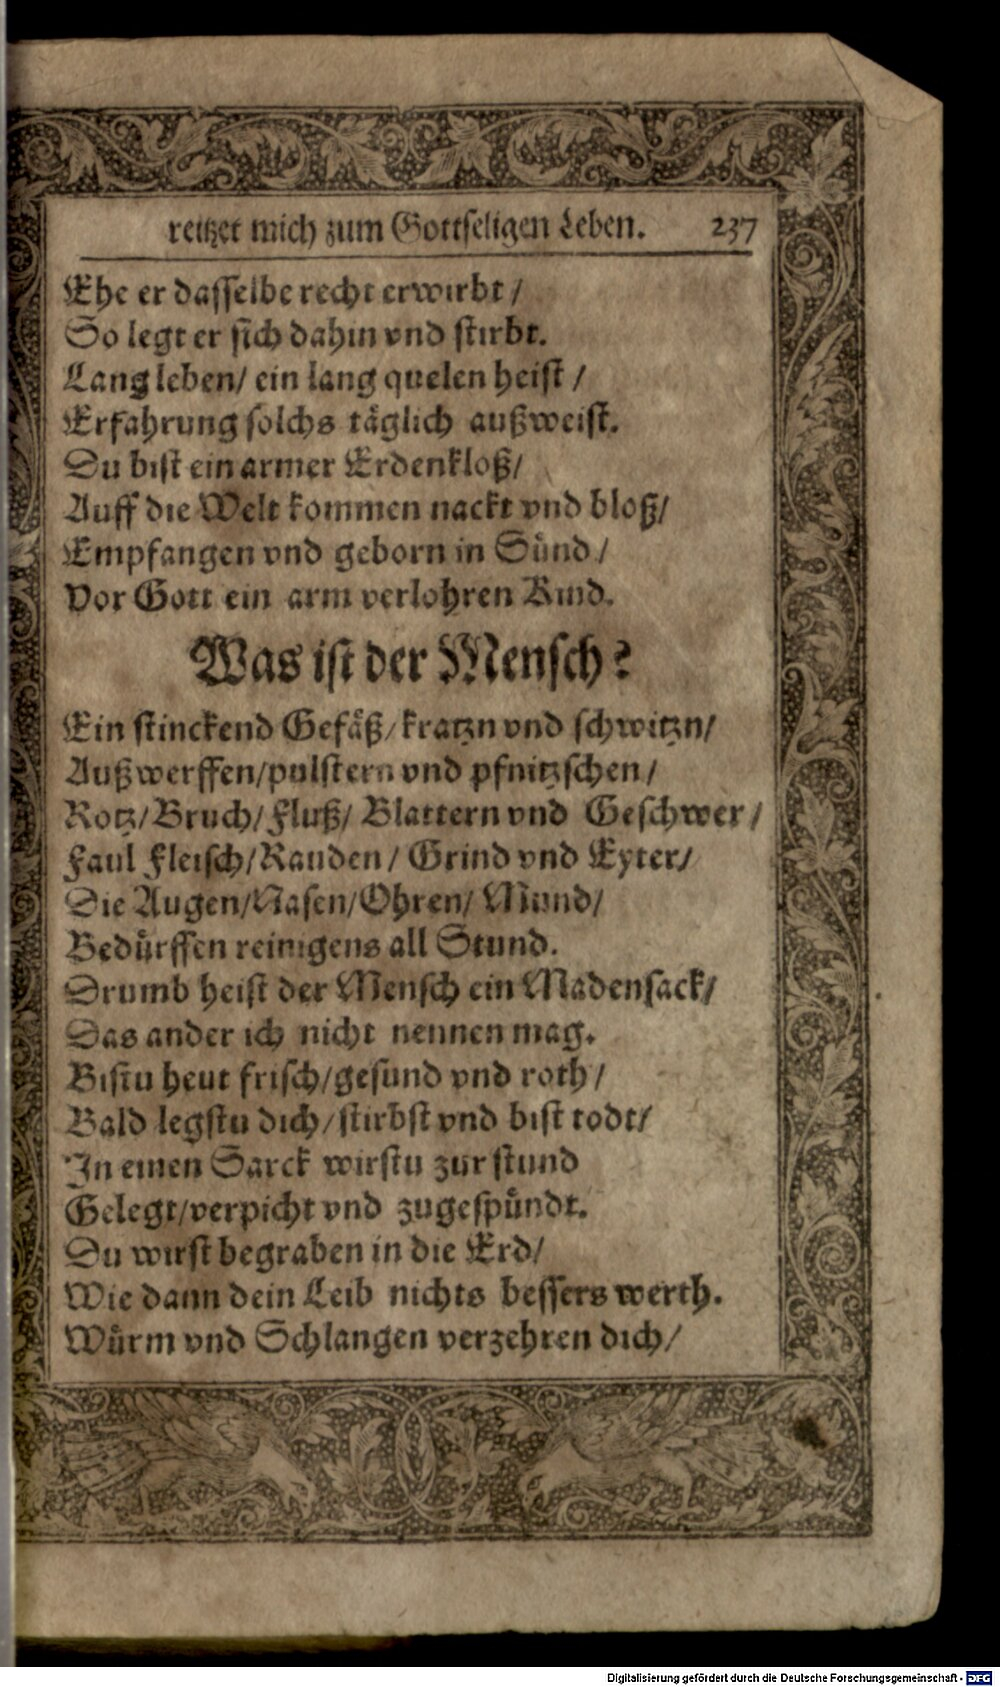 reitzet mich zum Gottseligen Leben. 237
Ehe er dasselbe recht erwirbt /
So legt er sich dahin vnd stirbt.
Lang leben/ ein lang quelen heist /
Erfahrung solchs täglich außweist.
Du bist ein armer Erdenkloß/
Auff die Welt kommen nackt vnd bloß/
Empfangen vnd geborn in Sünd/
Vor Gott ein arm verlohren Kind.
Was ist der Mensch?
Ein stinckend Gefäß/kratzn vnd schwitzn/
Außwerffen/pulstern vnd pfnitzschen/
Rotz/Bruch/Fluß/ Blattern vnd Geschwer/
Faul Fleisch/Rauden/ Grind vnd Eyter/
Die Augen/Nasen/Ohren/ Mund/
Bedürffen reinigens all Stund.
Drumb heist der Mensch ein Madensack/
Das ander ich nicht nennen mag.
Bistu heut frisch/gesund vnd roth/
Bald legstu dich/stirbst vnd bist todt/
In einen Sarck wirstu zur stund
Gelegt/verpicht vnd zugespündt.
Du wirst begraben in die Erd/
Wie dann dein Leib nichts bessers werth.
Würm vnd Schlangen verzehren dich/
Digitalisierung gefördert durch die Deutsche Forschungsgemeinschaft - DFG